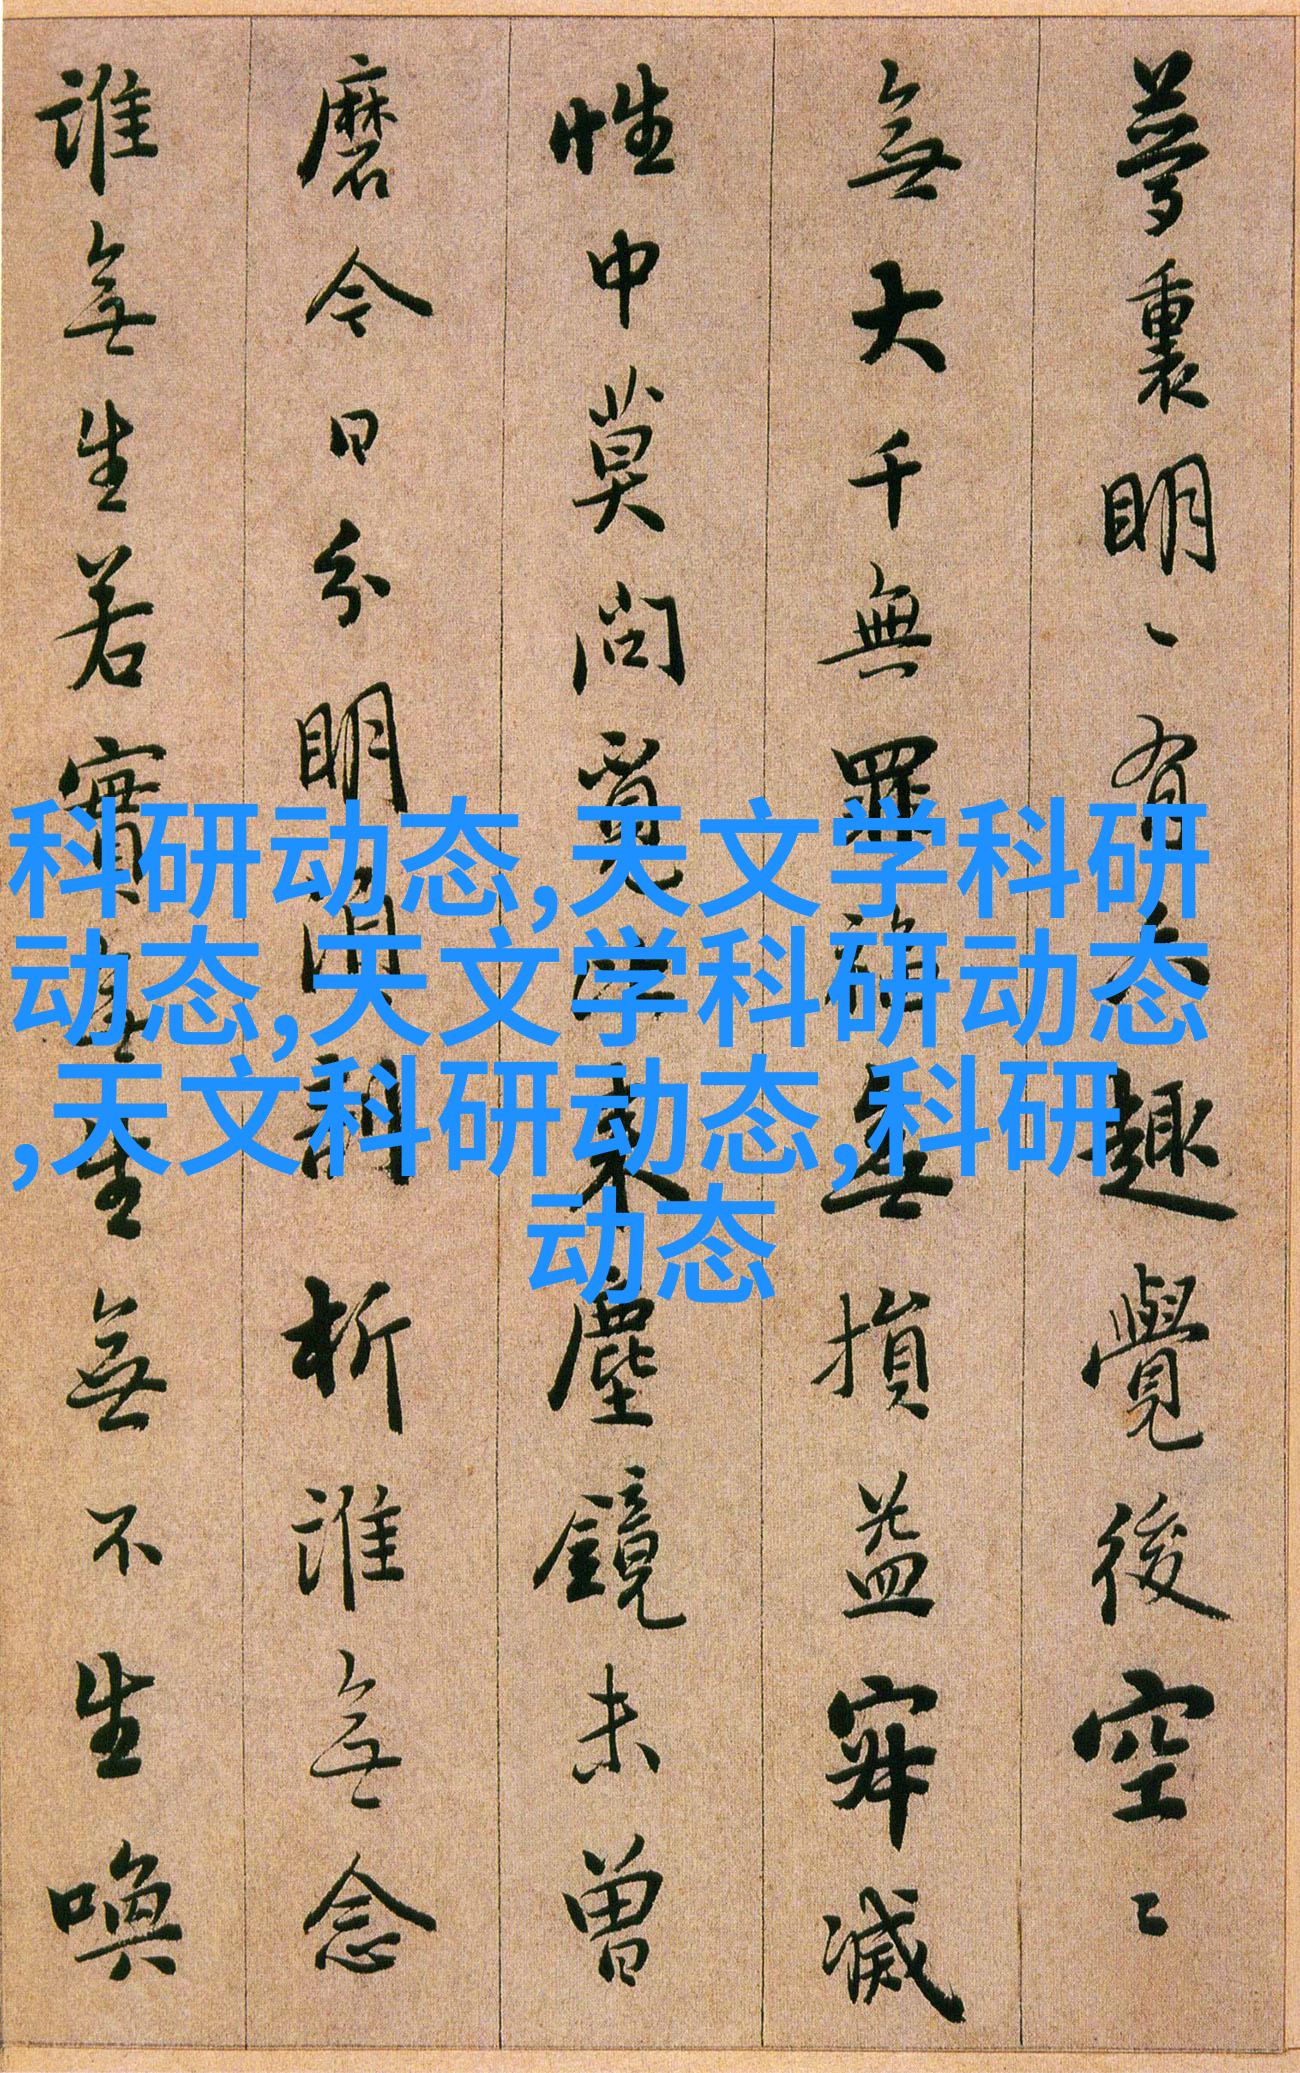 夢裏明〻有六趣覺後空〻
無大千無罪福無損益寂滅
性中莫問覓来塵鏡未曾
磨今日分明湏剖析誰無念
誰無生若實無生無不生喚
科研动态,天文学科研
动态,天文学科研动态
,天文科研动态,科研
动态